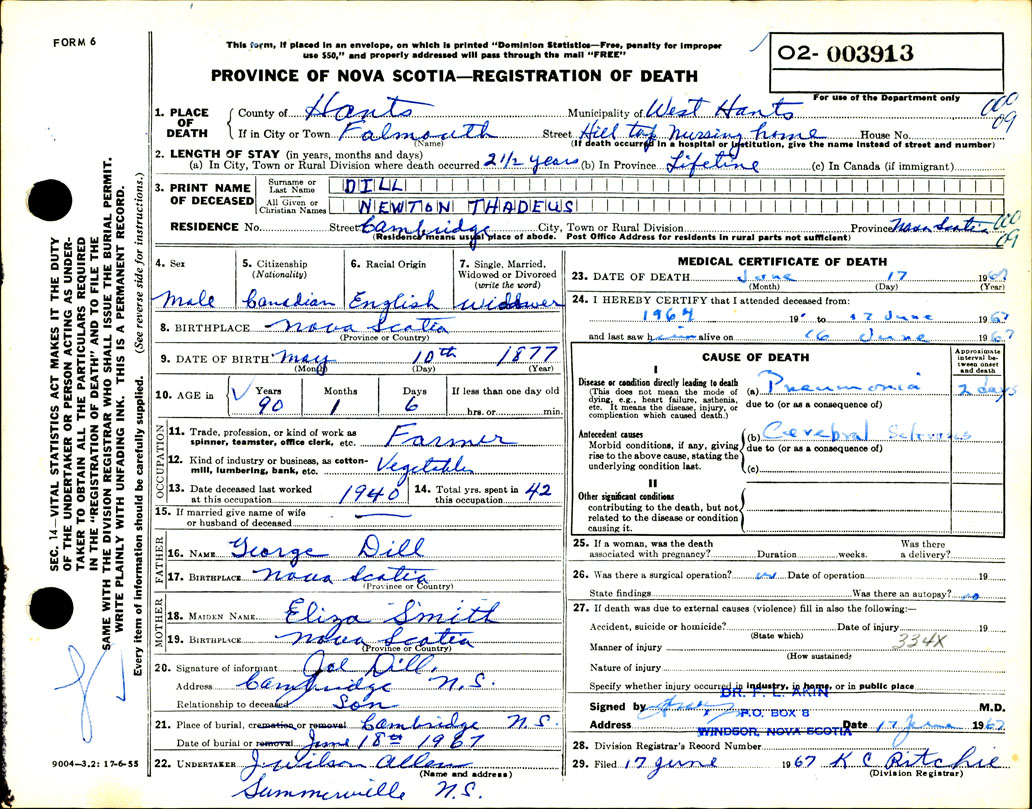 FORM 6
This form, if placed in an envelope, on which is printed "Dominion Statistics—Free, penalty for improper
use $50," and properly addressed will pass through the mail "FREE"
PROVINCE OF NOVA SCOTIA—REGISTRATION OF DEATH
02-003913
For use of the Department only
1. PLACE OF DEATH { County of Hants Municipality of West Hants
If in City or Town Falmouth Street Hill top Nursing home House No.
(Name) (If death occurred in a hospital or institution, give the name instead of street and number)
000
09
2. LENGTH OF STAY (in years, months and days)
(a) In City, Town or Rural Division where death occurred 2 1/2 years (b) In Province Lifetime (c) In Canada (if immigrant)
3. PRINT NAME OF DECEASED
Surname or Last Name DILL
All Given or Christian Names NEWTON THADEUS
RESIDENCE No. Street Cambridge City, Town or Rural Division Province Nova Scotia
(Residence means usual place of abode. Post Office Address for residents in rural parts not sufficient)
000
09
4. Sex Male
5. Citizenship (Nationality) Canadian
6. Racial Origin English
7. Single, Married, Widowed or Divorced (write the word) widower
8. BIRTHPLACE Nova Scotia
(Province or Country)
9. DATE OF BIRTH May 10th 1877
(Month) (Day) (Year)
10. AGE in { Years 90 Months 1 Days 6 If less than one day old hrs. or min.
OCCUPATION
11. Trade, profession, or kind of work as spinner, teamster, office clerk, etc. Farmer
12. Kind of industry or business, as cotton-mill, lumbering, bank, etc. Vegetables
13. Date deceased last worked at this occupation 1940
14. Total yrs. spent in this occupation 42
15. If married give name of wife or husband of deceased —
FATHER
16. NAME George Dill
17. BIRTHPLACE Nova Scotia
(Province or Country)
MOTHER
18. MAIDEN NAME Eliza Smith
19. BIRTHPLACE Nova Scotia
(Province or Country)
20. Signature of informant Joe Dill.
Address Cambridge N.S.
Relationship to deceased Son
21. Place of burial, cremation or removal Cambridge N.S.
Date of burial or removal June 18th 1967
22. UNDERTAKER J Wilson Allen
(Name and address)
Summerville N.S.
9004—3.2: 17-6-55
MEDICAL CERTIFICATE OF DEATH
23. DATE OF DEATH June 17 1967
(Month) (Day) (Year)
24. I HEREBY CERTIFY that I attended deceased from:
1964 19 to 17 June 1967
and last saw him alive on 16 June 1967
CAUSE OF DEATH
Approximate interval between onset and death
I
Disease or condition directly leading to death
(This does not mean the mode of dying, e.g., heart failure, asthenia, etc. It means the disease, injury, or complication which caused death.)
(a) Pneumonia 2 days
due to (or as a consequence of)
Antecedent causes
Morbid conditions, if any, giving rise to the above cause, stating the underlying condition last.
(b) Cerebral Sclerosis
due to (or as a consequence of)
(c)
II
Other significant conditions
contributing to the death, but not related to the disease or condition causing it.
25. If a woman, was the death associated with pregnancy? Duration weeks. Was there a delivery?
26. Was there a surgical operation? no Date of operation 19
State findings Was there an autopsy? no
27. If death was due to external causes (violence) fill in also the following:—
Accident, suicide or homicide? Date of injury 19
(State which)
Manner of injury 334X
(How sustained)
Nature of injury
Specify whether injury occurred in industry, in home, or in public place
DR. F. L. AKIN
P.O. BOX 8
WINDSOR, NOVA SCOTIA
Signed by M.D.
Address Date 17 June 1967
28. Division Registrar's Record Number
29. Filed 17 June 1967 K C Ritchie
(Division Registrar)
SEC. 14—VITAL STATISTICS ACT MAKES IT THE DUTY
OF THE UNDERTAKER OR PERSON ACTING AS UNDER-
TAKER TO OBTAIN ALL THE PARTICULARS REQUIRED
IN THE "REGISTRATION OF DEATH" AND TO FILE THE
SAME WITH THE DIVISION REGISTRAR WHO SHALL ISSUE THE BURIAL PERMIT.
WRITE PLAINLY WITH UNFADING INK. THIS IS A PERMANENT RECORD.
Every item of information should be carefully supplied. (See reverse side for instructions.)